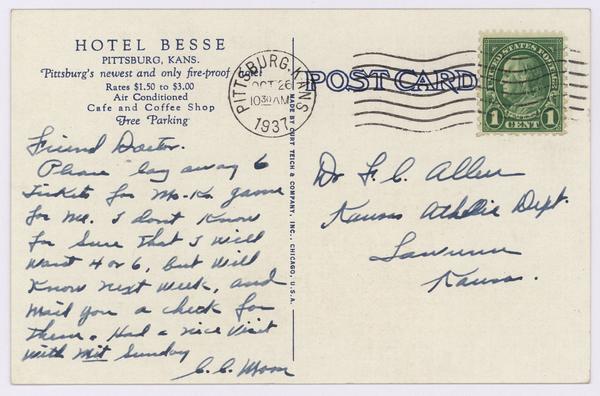 HOTEL BESSE
PITTSBURG, KANS.
Pittsburg's newest and only fire-proof
Rates $1.50 to $3.00
Air Conditioned
Cafe and Coffee Shop
Free Parking
PITTSBURG, KANS
OCT 26
1030 AM
1937
POST CARD
UNITED STATES POSTAGE
1 CENT 1
MADE BY CURT TEICH & COMPANY, INC., CHICAGO, U.S.A.
Friend Doctor.
Please lay away 6
tickets for Mo-Ks game
for me. I dont know
for sure that I will
want 4 or 6, but will
know next week, and
mail you a check for
them. Had a nice visit
with Mit Sunday
C.C. Moon
Dr F. C. Allen
Kansas Athletic Dept.
Lawrence
Kansas.